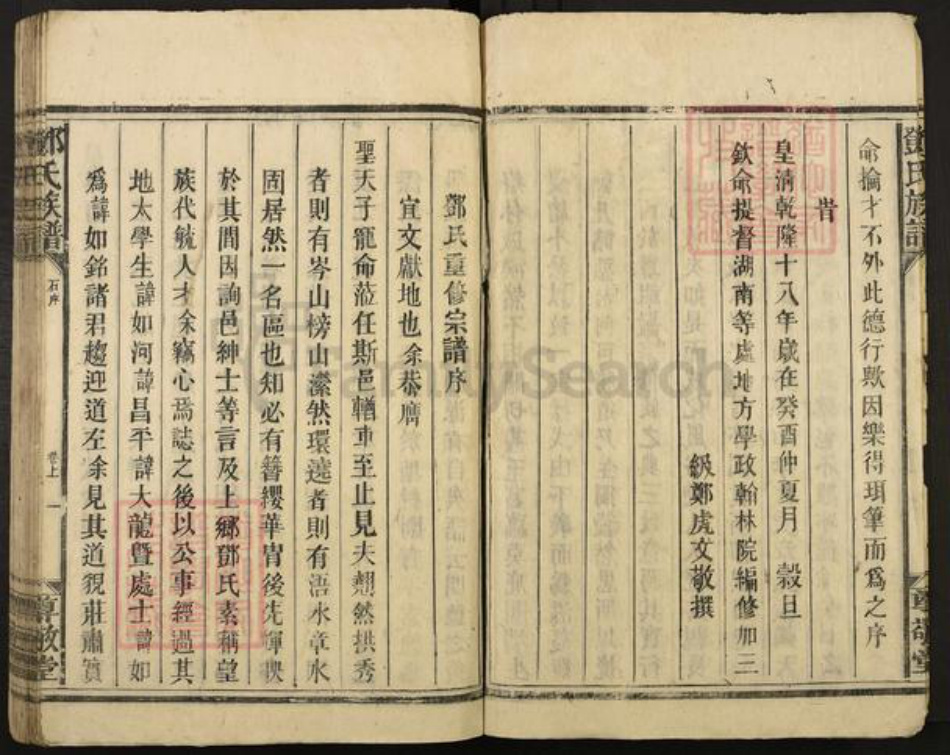 命掄才不外此德行歟因樂得珥筆而為之序
昔
皇清乾隆十八年歲在癸酉仲夏月 穀旦
欽命提督湖南等處地方學政翰林院編修加三
級鄭虎文敬撰
鄧氏重修宗譜序
宜文獻地也余恭膺
聖天子寵命蒞任斯邑輶車至止見夫翹然拱秀
者則有岑山榜山瀠然環遶者則有浯水章水
固居然一名區也知必有簪纓華胄後先輝映
於其間因詢邑紳士等言及上鄉鄧氏素稱望
族代毓人才余竊心焉誌之後以公事經過其
地太學生諱如河諱昌平諱大龍暨處士諱如
為諱如銘諸君趨迎道左余見其道貌莊肅實
鄧氏族譜
石序
卷上
一
尊敬堂
FamilySearch